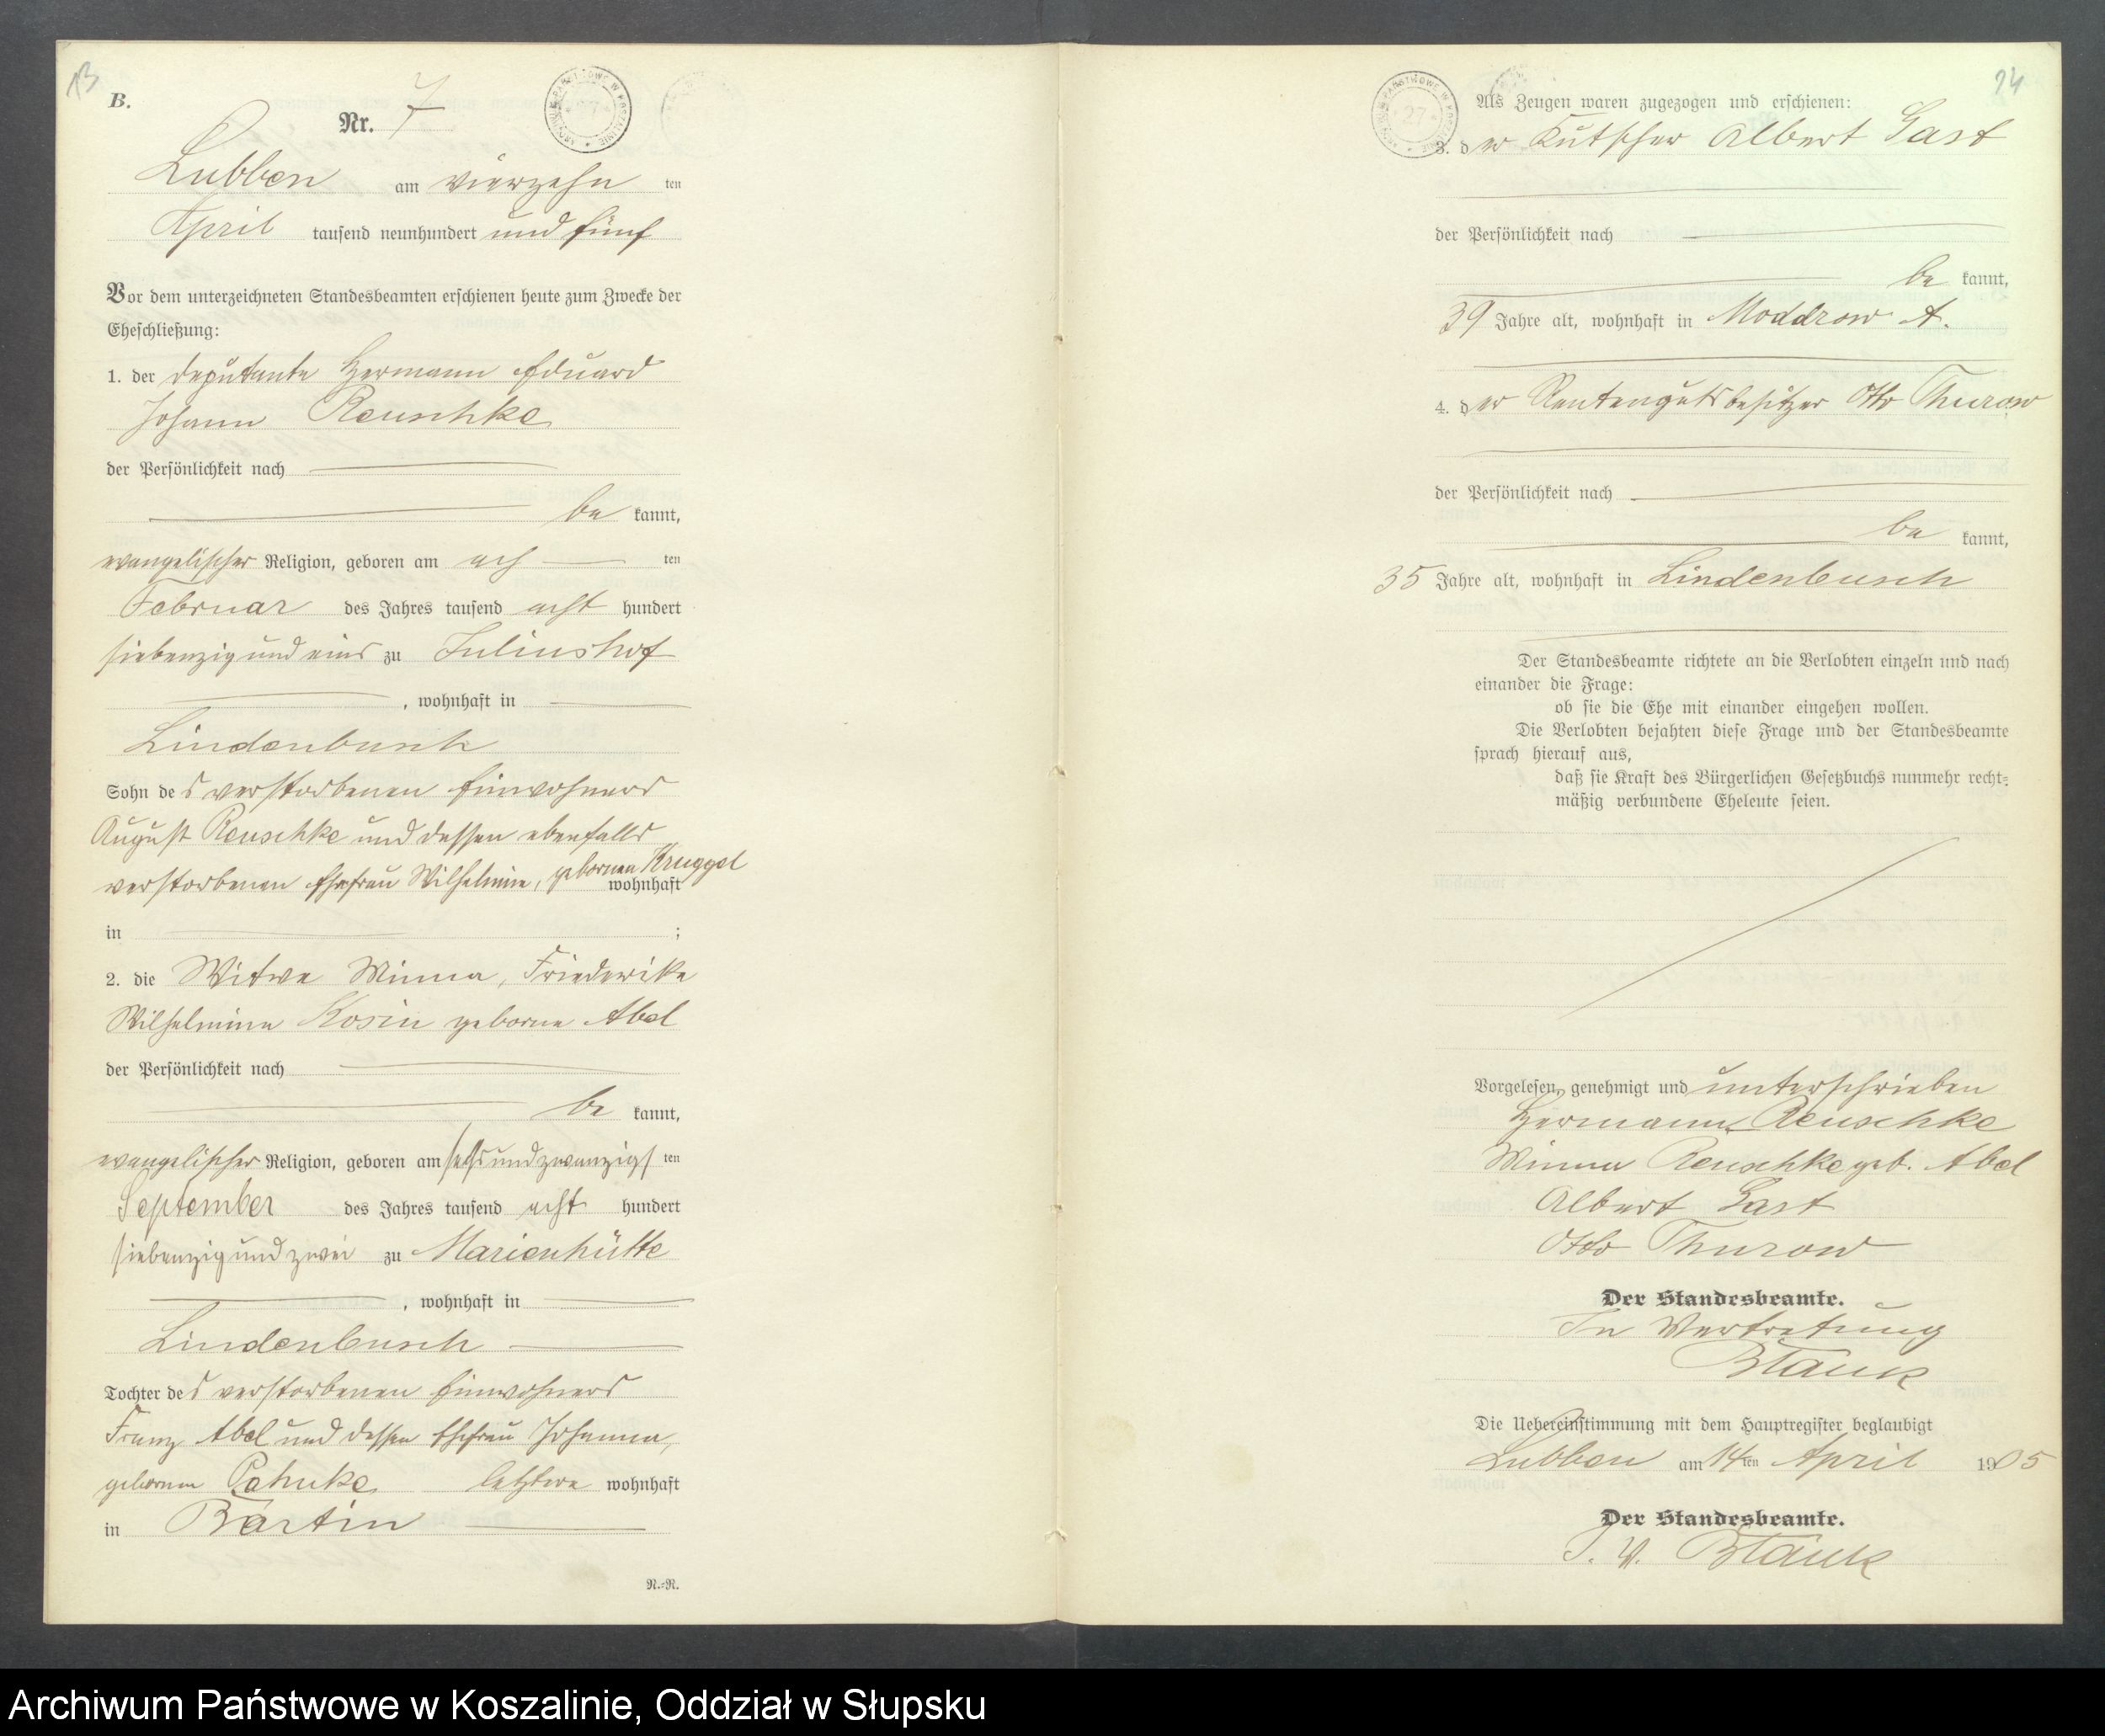 13
B.
Nr. 7
Lubben am vierzehn ten
April tausend neunhundert und fünf
Vor dem unterzeichneten Standesbeamten erschienen heute zum Zwecke der
Eheschließung:
1. der Deputante Hermann Eduard
Johann Reuschke
der Persönlichkeit nach
be kannt,
evangelischer Religion, geboren am ach ten
Februar des Jahres tausend acht hundert
siebenzig und eins zu Juliushof
, wohnhaft in
Lindenbusch
Sohn des verstorbenen Einwohners
August Reuschke und dessen ebenfalls
verstorbenen Ehefrau Wilhelmine, gebornen Kruggel
wohnhaft
in ;
2. die Witwe Minna, Friederike
Wilhelmine Kosin geborne Abel
der Persönlichkeit nach
be kannt,
evangelischer Religion, geboren am sechsundzwanzigs ten
September des Jahres tausend acht hundert
siebenzig und zwei zu Marienhütte
, wohnhaft in
Lindenbusch
Tochter des verstorbenen Einwohners
Franz Abel und dessen Ehefrau Johanna,
gebornen letztere wohnhaft
in Bartin
N.-N.
24
Als Zeugen waren zugezogen und erschienen:
3. der Kutscher Albert Gast
der Persönlichkeit nach
be kannt,
39 Jahre alt, wohnhaft in Moddrow A.
4. der Rentengutsbesitzer Otto Thurow
der Persönlichkeit nach
be kannt,
35 Jahre alt, wohnhaft in Lindenbusch
Der Standesbeamte richtete an die Verlobten einzeln und nach
einander die Frage:
ob sie die Ehe mit einander eingehen wollen.
Die Verlobten bejahten diese Frage und der Standesbeamte
sprach hierauf aus,
daß sie Kraft des Bürgerlichen Gesetzbuchs nunmehr recht-
mäßig verbundene Eheleute seien.
Vorgelesen, genehmigt und unterschrieben
Hermann Reuschke
Minna Reuschke geb. Abel
Albert Gast
Otto Thurow
Der Standesbeamte.
In Vertretung
Die Uebereinstimmung mit dem Hauptregister beglaubigt
Lubben am 14 ten April 1905
Der Standesbeamte.
J. V.
Archiwum Państwowe w Koszalinie, Oddział w Słupsku